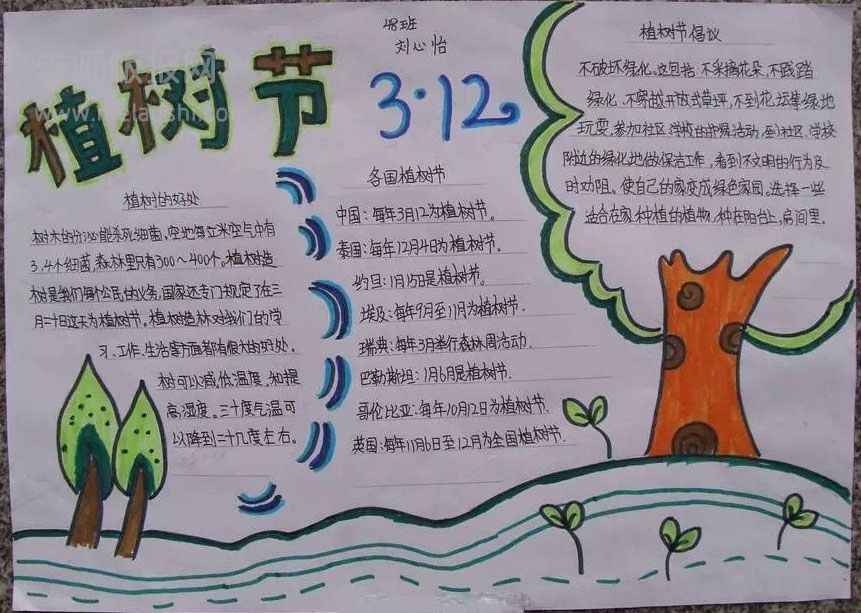 植树节
48班
刘心怡
3·12
植树的好处
树木的分泌能杀死细菌。空地每立米空气中有
3.4个细菌,森林里只有300~400个。植树造
树是我们每个公民的义务,国家还专门规定了在三
月二十日这天为植树节。植树造林对我们的学
习、工作、生活等方面都有很大的好处。
树可以减低温度。和提
高湿度。三十度气温可
以降到二十几度左右。
各国植树节
中国:每年3月12为植树节。
泰国:每年12月4日为植树节。
约旦:1月15日是植树节。
埃及:每年9月至11月为植树节.
瑞典:每年3月举行森林周活动.
巴勒斯坦:1月6月是植树节.
哥伦比亚:每年10月12日为植树节.
英国:每年11月6日至12月为全国植树节.
植树节倡议
不破坏绿化。这包括:不采摘花朵,不践踏
绿化,不穿越开放式草坪,不到花坛等绿地
玩耍,参加社区学校的护绿活动,到社区,学校
附近的绿化地做保洁工作,看到不文明的行为及
时劝阻。使自己的家变成绿色家园。选择一些
适合在家种植的植物,种在阳台上,房间里.